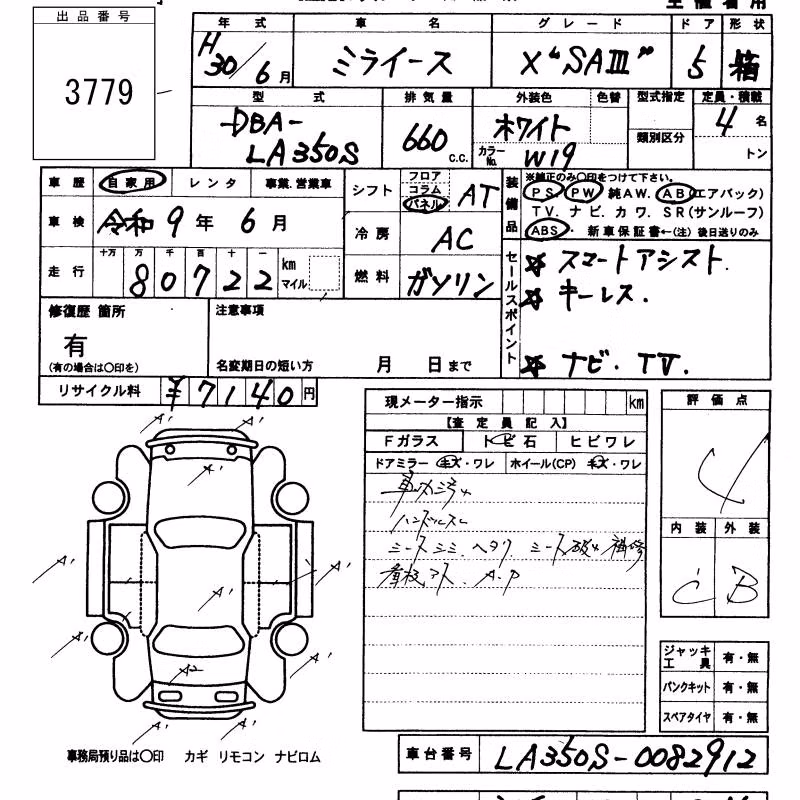 出品番号
3779
年式 車名 グレード ドア 形状
H30/6月 ミライース X "SAⅢ" 5 箱
型式 排気量 外装色 色替 型式指定 定員・積載
DBA-LA350S 660 c.c. ホワイト カラーNo. W19 類別区分 4名 トン
車歴 自家用 レンタ 事業.営業車
車検 令和9年6月
走行 十万 万 千 百 十 一
80722 km マイル
シフト フロア コラム パネル AT
冷房 AC
燃料 ガソリン
装備品 ※純正のみ〇印をつけて下さい。
PS. PW. 純AW. AB(エアバック)
TV. ナビ. カワ. SR(サンルーフ)
ABS・ 新車保証書←(注) 後日送りのみ
セールスポイント
☆ スマートアシスト.
☆ キーレス.
☆ ナビ. TV.
修復歴 箇所 注意事項
有
(有の場合は〇印を) 名変期日の短い方 月 日まで
リサイクル料 ¥7140円
現メーター指示 km
【査定員記入】
Fガラス トビ石 ヒビワレ
ドアミラー キズ・ワレ ホイール(CP) キズ・ワレ
車内汚れ
ハンドルスレ
シートシミ ヘタリ シート破れ 補修
看板アト A.P
評価点
4
内装 外装
C B
ジャッキ工具 有・無
パンクキット 有・無
スペアタイヤ 有・無
A' A'
A'
A' A'
A'
A' A'
A2
A' A'
事務局預り品は〇印 カギ リモコン ナビロム
車台番号 LA350S-0082912